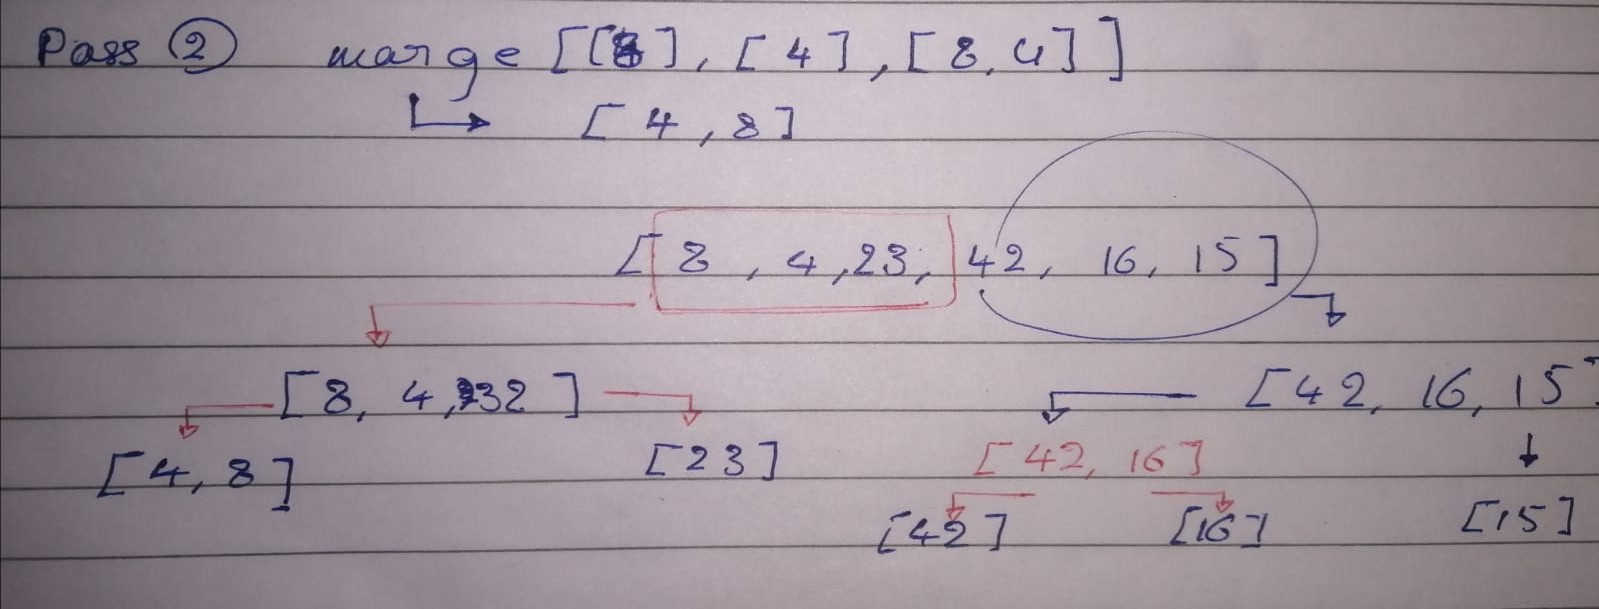 Pass 2 marge [[8], [4], [8, 4]]
[4, 8]
[8, 4, 23, 42, 16, 15]
[8, 4, 32] [42, 16, 15]
[4, 8] [23] [42, 16]
[42] [16] [15]